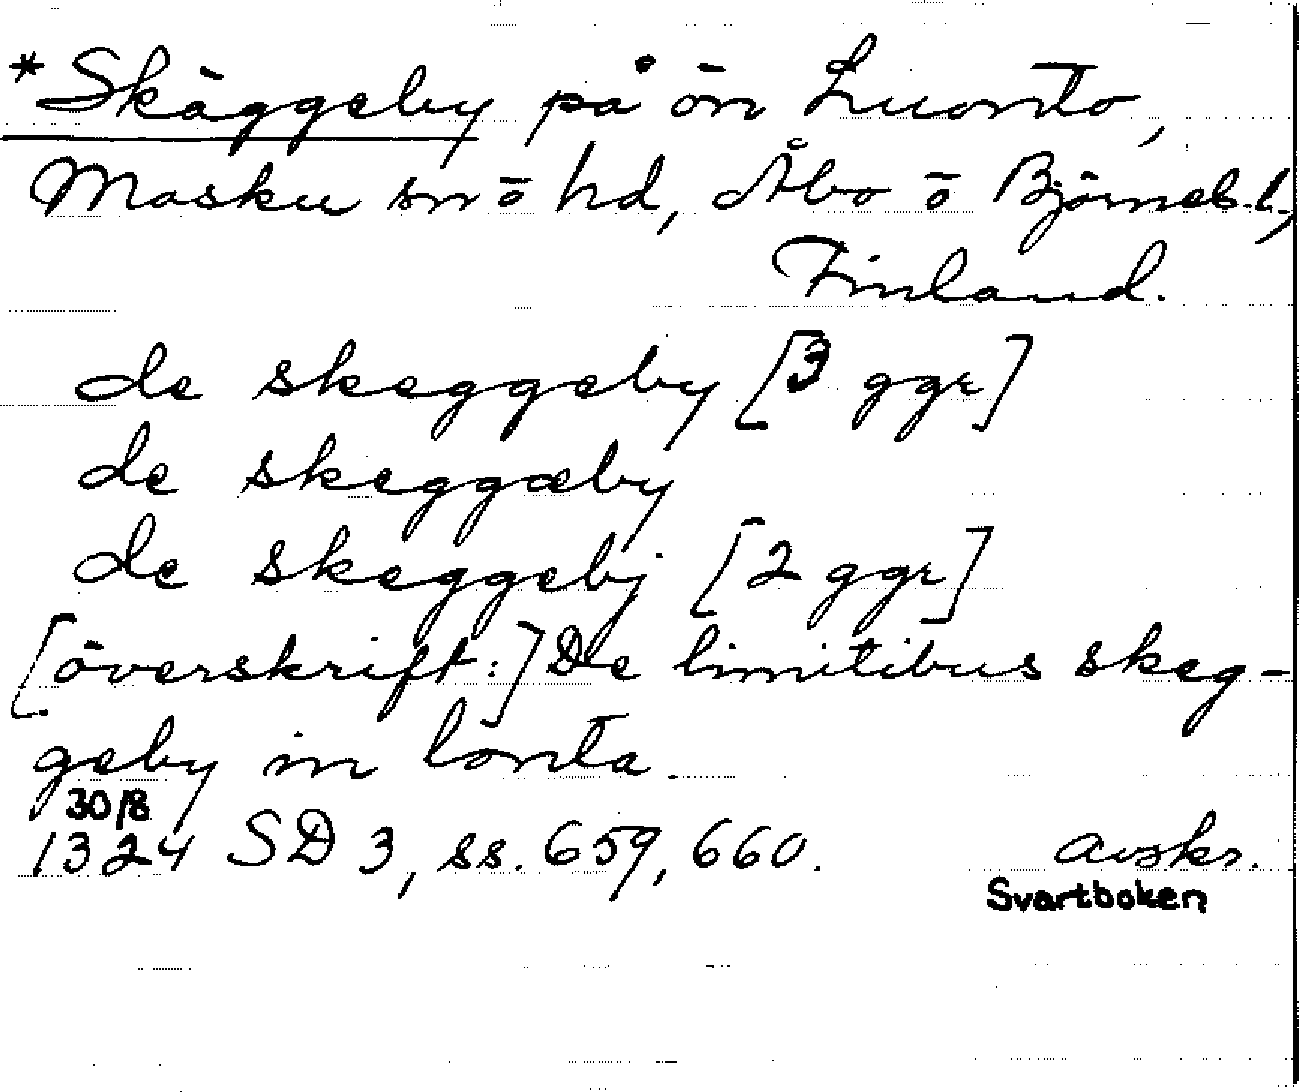 *Skäggeby på ön Luonto,
Masku sn ö hd, Åbo ö Björneb. l,
Finland.
de skeggeby [3 ggr]
de skeggæby
de skeggebij [2 ggr]
[överskrift:] De limitibus skeg-
geby in lonta.
30/8
1324 SD 3, ss. 659, 660. avskr.
Svartboken